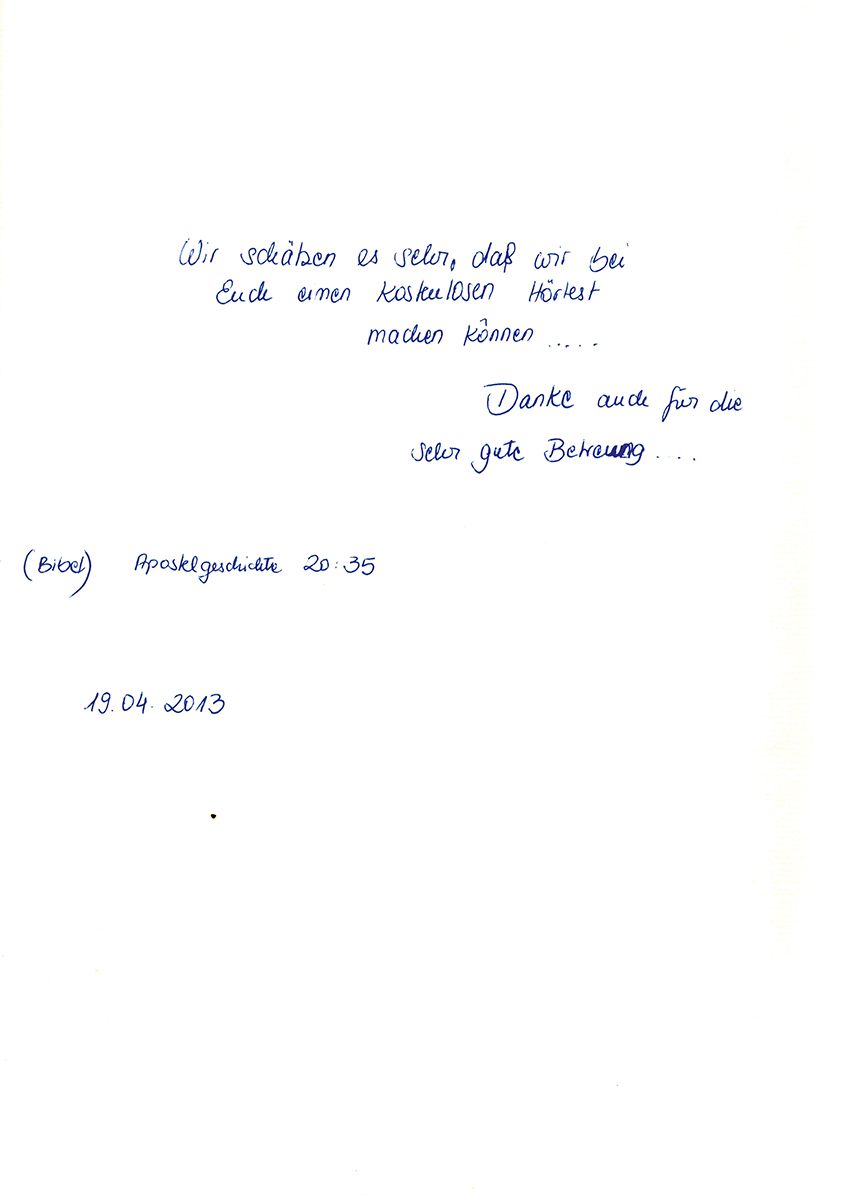 Wir schätzen es sehr, daß wir bei
Euch einen kostenlosen Hörtest
machen können .....
Danke auch für die
sehr gute Betreuung ....
(Bibel) Apostelgeschichte 20:35
19.04.2013